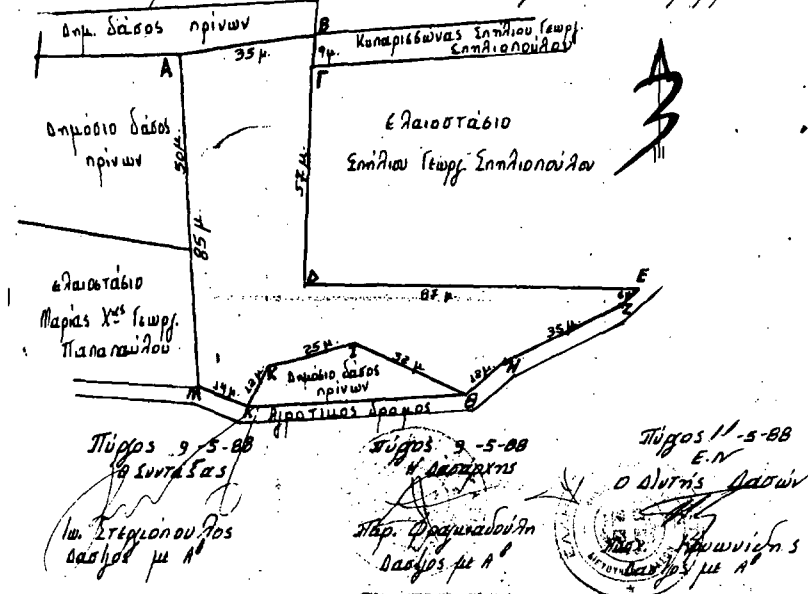 Δημ. δάσος πρίνων
Α
35 μ.
Β
9μ.
Κυπαρισσώνας Σπήλιου Γεωργ.
Σπηλιοπούλου
Γ
Δημόσιο δάσος
πρίνων
50 μ.
85 μ.
57 μ.
ελαιοστάσιο
Σπήλιου Γεωργ. Σπηλιοπούλου
ελαιοστάσιο
Μαρίας Χας Γεωργ.
Παπαπαύλου
Δ
87 μ.
Ε
Ζ
35 μ.
Η
18 μ.
Θ
32 μ.
Ι
25 μ.
Κ
Δημόσιο δάσος
πρίνων
Μ
14 μ.
Αγροτικός δρόμος
Πύργος 9-5-88
Ο Συντάξας
Ιω. Στεργιόπουλος
Δασ/γος με Α β
Πύργος 9-5-88
Η Δασάρχης
Παρ. Φραγκαδούλη
Δασ/γος με Α β
Πύργος 11-5-88
Ε.Ν
Ο Δ/ντής Δασών
Δασ/γος με Α β